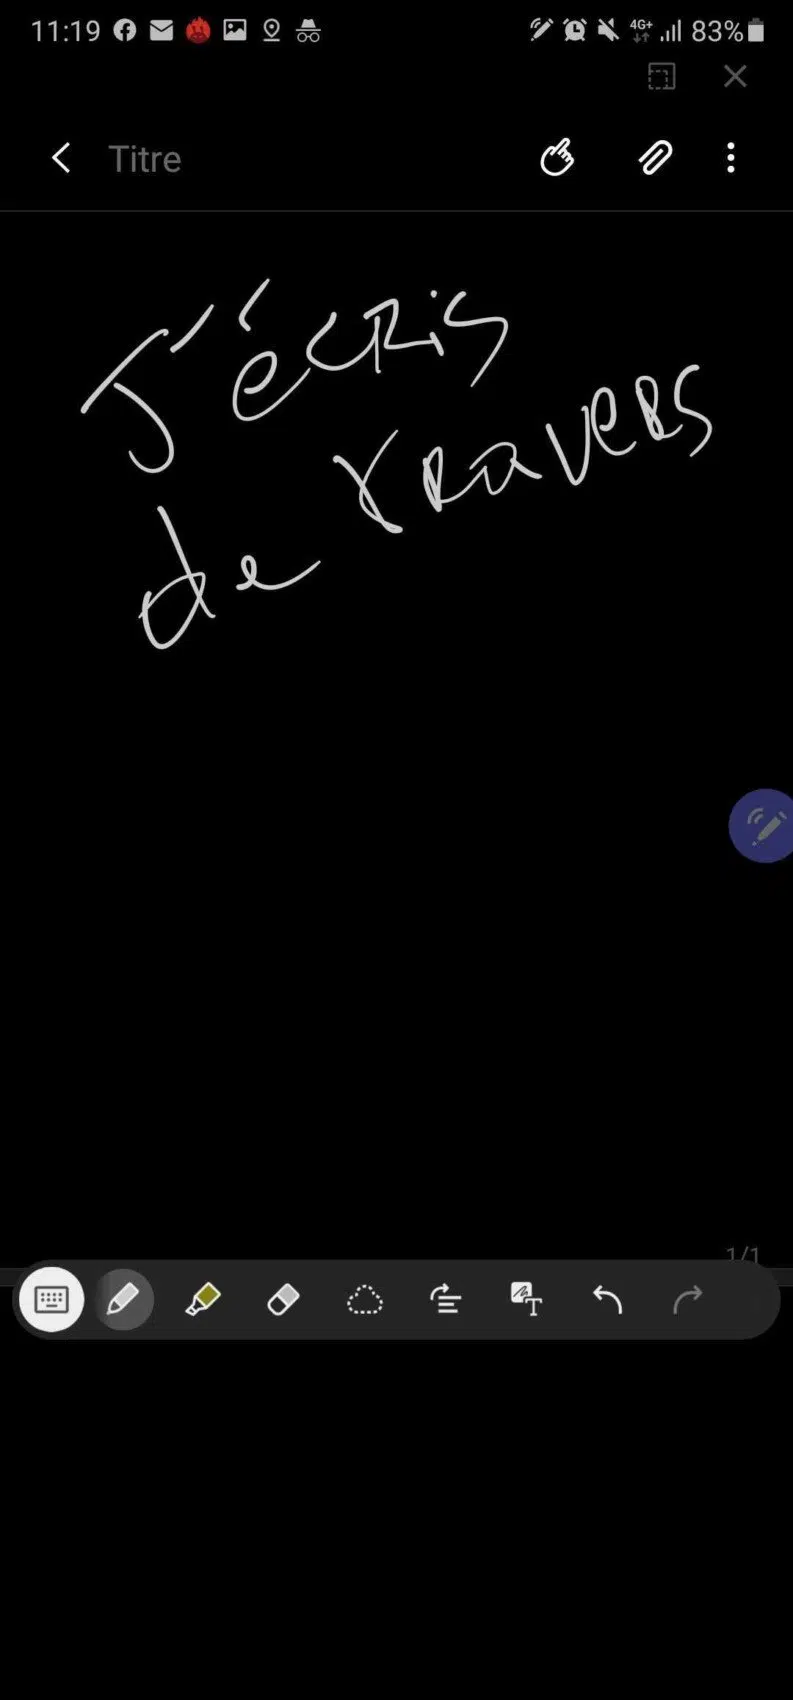 11:19 4G+ 83%
Titre
J'écris
de travers
1/1
T